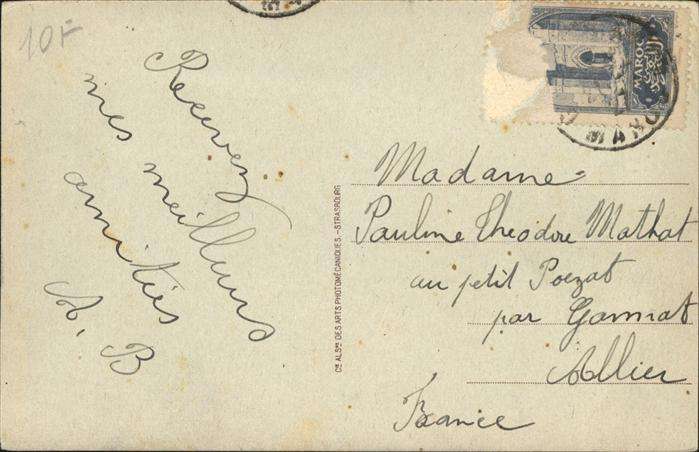 10F
Recevez
mes meilleurs
amitiés
A. B
Cie ALSne DES ARTS PHOTOMÉCANIQUES. - STRASBOURG
MAROC
Madame
Pauline Theodore Mathat
au petit Poezat
par Gannat
Allier
France